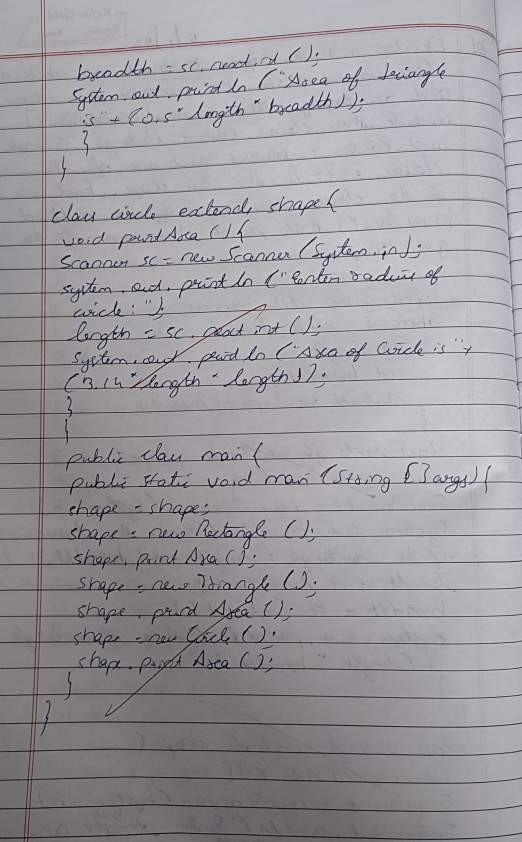 breadth = sc. next int ();
System. out. print ln ("Area of triangle
is" + (0.5 * length * breadth));
}
}
class circle extends shape {
void print Area () {
Scanner sc = new Scanner (System.in);
system. out. print ln ("Enter radius of
circle : ");
length = sc. next int ();
System. out. print ln ("Area of Circle is" +
(3.14 * length * length));
}
}
public class main {
public static void main (String [] args) {
shape = shape;
shape = new Rectangle ();
shape. print Area ();
shape = new Triangle ();
shape. print Area ();
shape = new Circle ();
shape. print Area ();
}
}